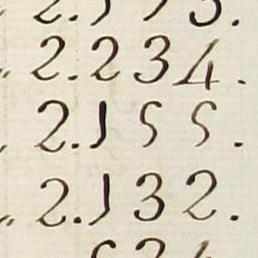 2.234.
2.155.
2.132.